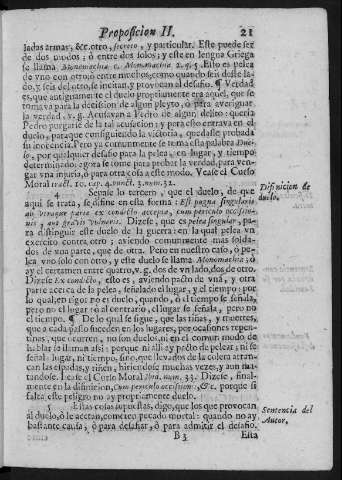 Proposicion II. 21
ladas armas, &c. otro, secreto, y particular. Este puede ser
de dos modos; ò entre dos solos; y este en lengua Griega
se llama. Monomachia c. Monomachia 2. q. 5. Esto es pelea
de vno con otro; ò entre muchos, como quando seis de este la-
do, y seis del otro, se incitan, y provocan al desafio. ¶ Verdad
es, que antiguamente el duelo propriamente era aquel, que se
tomava para la decision de algun pleyto, ò para averiguar
la verdad, v. g. Acusavan à Pedro de algun delito: queria
Pedro purgarse de la tal acusacion; y para esto entrava en el
duelo, para que consiguiendo la victoria, quedasse probada
su inocencia. Pero ya comunmente se toma esta palabra Due-
lo, por qualquier desafio para la pelea, en lugar, y tiempo
determinado: agora se tome para probar la verdad, para ven-
gar vna injuria, ò para otra cosa a este modo. Vease el Curso
Moral tract. 10. cap. 4. punct. 3. num. 32.
4 Seque lo tercero, que el duelo, de que
aqui se trata, se difine en esta forma: Est pugna singularis
ab utraque parte ex condicto accepta, cum periculo occisionis,
aut gravis vulneris. Dizese, que es pelea singular, pa-
ra distinguir este duelo de la guerra: en la qual pelea vn
exercito contra otro; aviendo comunmente mas solda-
dos de vna parte, que de otra. Pero en nuestro caso, ò pe-
lea vno solo con otro, y este duelo se llama Monomachia; ò
ay el certamen entre quatro, v. g. dos de vn lado, dos de otro.
Dizese Ex condicto, esto es, aviendo pacto de vna, y otra
parte acerca de la pelea, señalado el lugar, y el tiempo: por
lo qual, en rigor no es duelo, quando, ò el tiempo se señala,
pero no el lugar; ò al contrario, el lugar se señala, pero no
el tiempo. ¶ De lo qual se sigue, que las riñas, y muertes,
que a cada passo suceden en los lugares, por ocasiones repen-
tinas, que ocurren, no son duelos, ni en el comun modo de
hablar se llaman assi: porque ni alli ay pacto de pelear; ni se
señalò lugar, ni tiempo, sino, que llevados de la colera arran-
can las espadas, y riñen, hiriendose muchas vezes, y aun ma-
tandose. Lease el Curso Moral ibra. num. 33. Dizese, final-
mente en la difinicion, Cum periculo occisionis, &c. porque si
falta este peligro no ay propriamente duelo.
5 Estas cosas supuestas, digo, que los que provocan
al duelo, ò le acetan, cometen pecado mortal: quando no ay
bastante causa; ò para desafiar, ò para admitir el desafio.
B3 Esta
Difinicion de
duelo.
Sentencia del
Autor,